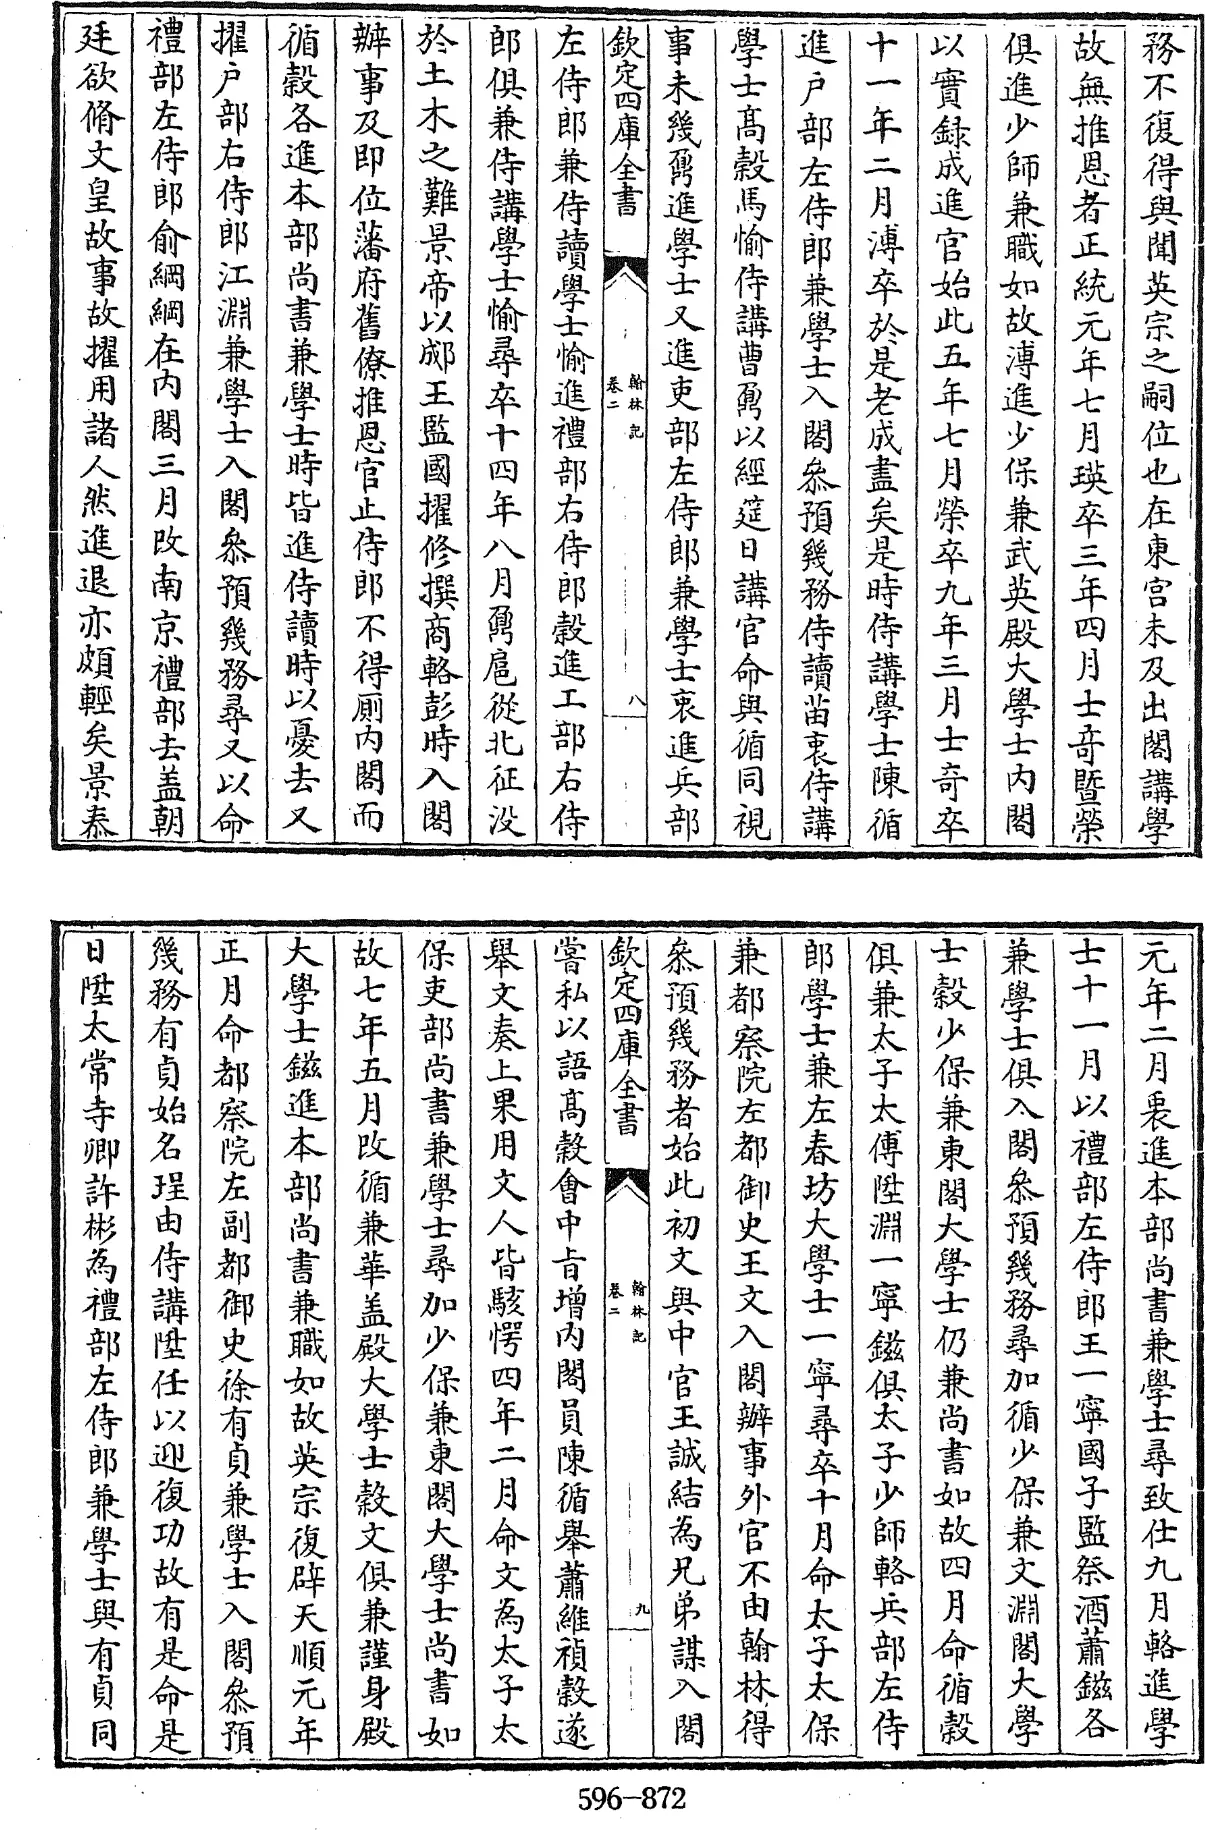 務不復得與聞英宗之嗣位也在東宮未及出閣講學
故無推恩者正統元年七月瑛卒三年四月士竒暨榮
俱進少師兼職如故溥進少保兼武英殿大學士内閣
以實録成進官始此五年七月榮卒九年三月士竒卒
十一年二月溥卒於是老成盡矣是時侍講學士陳循
進户部左侍郎兼學士入閣叅預幾務侍讀苗衷侍講
學士髙穀馬愉侍講曹鼐以經筵日講官命與循同視
事未幾鼐進學士又進吏部左侍郎兼學士衷進兵部
欽定四庫全書
翰林記
卷二
八
左侍郎兼侍讀學士愉進禮部右侍郎榖進工部右侍
郎俱兼侍講學士愉尋卒十四年八月鼐扈從北征没
於土木之難景帝以郕王監國擢修撰商輅彭時入閣
辦事及即位藩府舊僚推恩官止侍郎不得厠内閣而
循穀各進本部尚書兼學士時皆進侍讀時以憂去又
擢户部右侍郎江淵兼學士入閣叅預幾務尋又以命
禮部左侍郎俞綱綱在内閣三月改南京禮部去盖朝
廷欲脩文皇故事故擢用諸人然進退亦頗輕矣景泰
元年二月衷進本部尚書兼學士尋致仕九月輅進學
士十一月以禮部左侍郎王一寧國子監祭酒蕭鎡各
兼學士俱入閣叅預幾務尋加循少保兼文淵閣大學
士穀少保兼東閣大學士仍兼尚書如故四月命循穀
俱兼太子太傅陞淵一寧鎡俱太子少師輅兵部左侍
郎學士兼左春坊大學士一寧尋卒十月命太子太保
兼都察院左都御史王文入閣辦事外官不由翰林得
叅預幾務者始此初文與中官王誠結為兄弟謀入閣
欽定四庫全書
翰林記
卷二
九
嘗私以語髙穀會中㫖增内閣員陳循舉蕭維禎穀遂
舉文奏上果用文人皆駭愕四年二月命文為太子太
保吏部尚書兼學士尋加少保兼東閣大學士尚書如
故七年五月改循兼華盖殿大學士穀文俱兼謹身殿
大學士鎡進本部尚書兼職如故英宗復辟天順元年
正月命都察院左副都御史徐有貞兼學士入閣叅預
幾務有貞始名珵由侍講陞任以迎復功故有是命是
日陞太常寺卿許彬為禮部左侍郎兼學士與有貞同
596-872